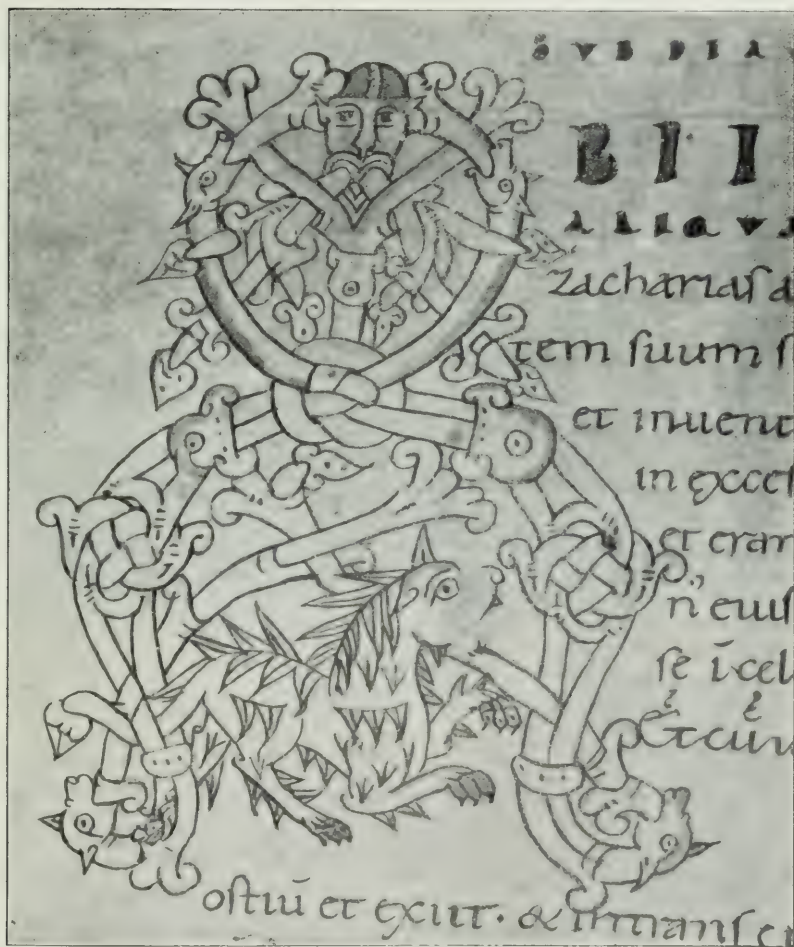 VBDIA
BII
ALIQVA
zachariaſ a
tem ſuum ſ
et inuent
in exceſ
et eran
n̄ euiſ
ſe ī cel
Et cum
oſtiū et exiit. &